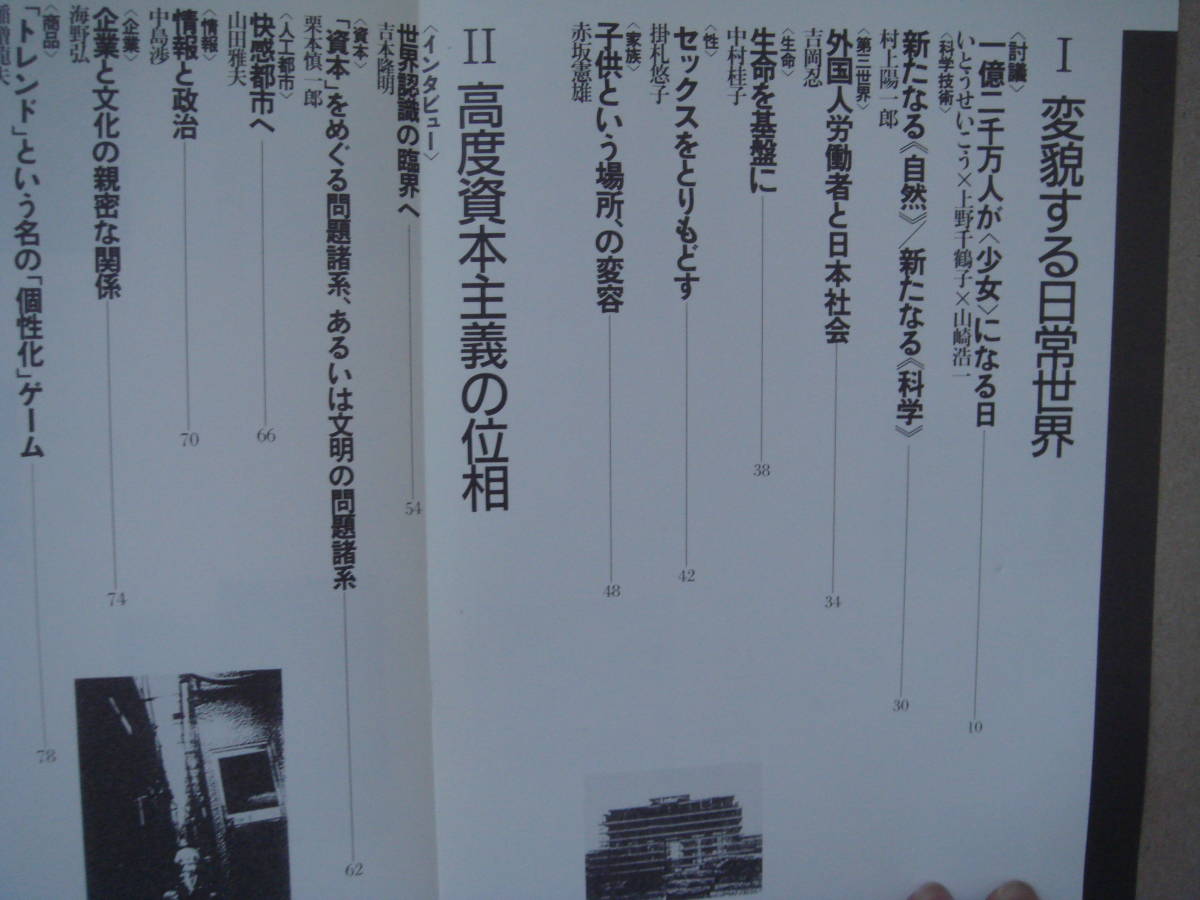 I 変貌する日常世界
〈討議〉
一億二千万人が〈少女〉になる日
10
いとうせいこう×上野千鶴子×山崎浩一
〈科学技術〉
新たなる《自然》／新たなる《科学》
30
村上陽一郎
〈第三世界〉
外国人労働者と日本社会
34
吉岡忍
〈生命〉
生命を基盤に
38
中村桂子
〈性〉
セックスをとりもどす
42
掛札悠子
〈家族〉
子供という場所、の変容
48
赤坂憲雄
II 高度資本主義の位相
〈インタビュー〉
世界認識の臨界へ
54
吉本隆明
〈資本〉
「資本」をめぐる問題諸系、あるいは文明の問題諸系
62
栗本慎一郎
〈人工都市〉
快感都市へ
66
山田雅夫
〈情報〉
情報と政治
70
中島渉
〈企業〉
企業と文化の親密な関係
74
海野弘
〈商品〉
「トレンド」という名の「個性化」ゲーム
78